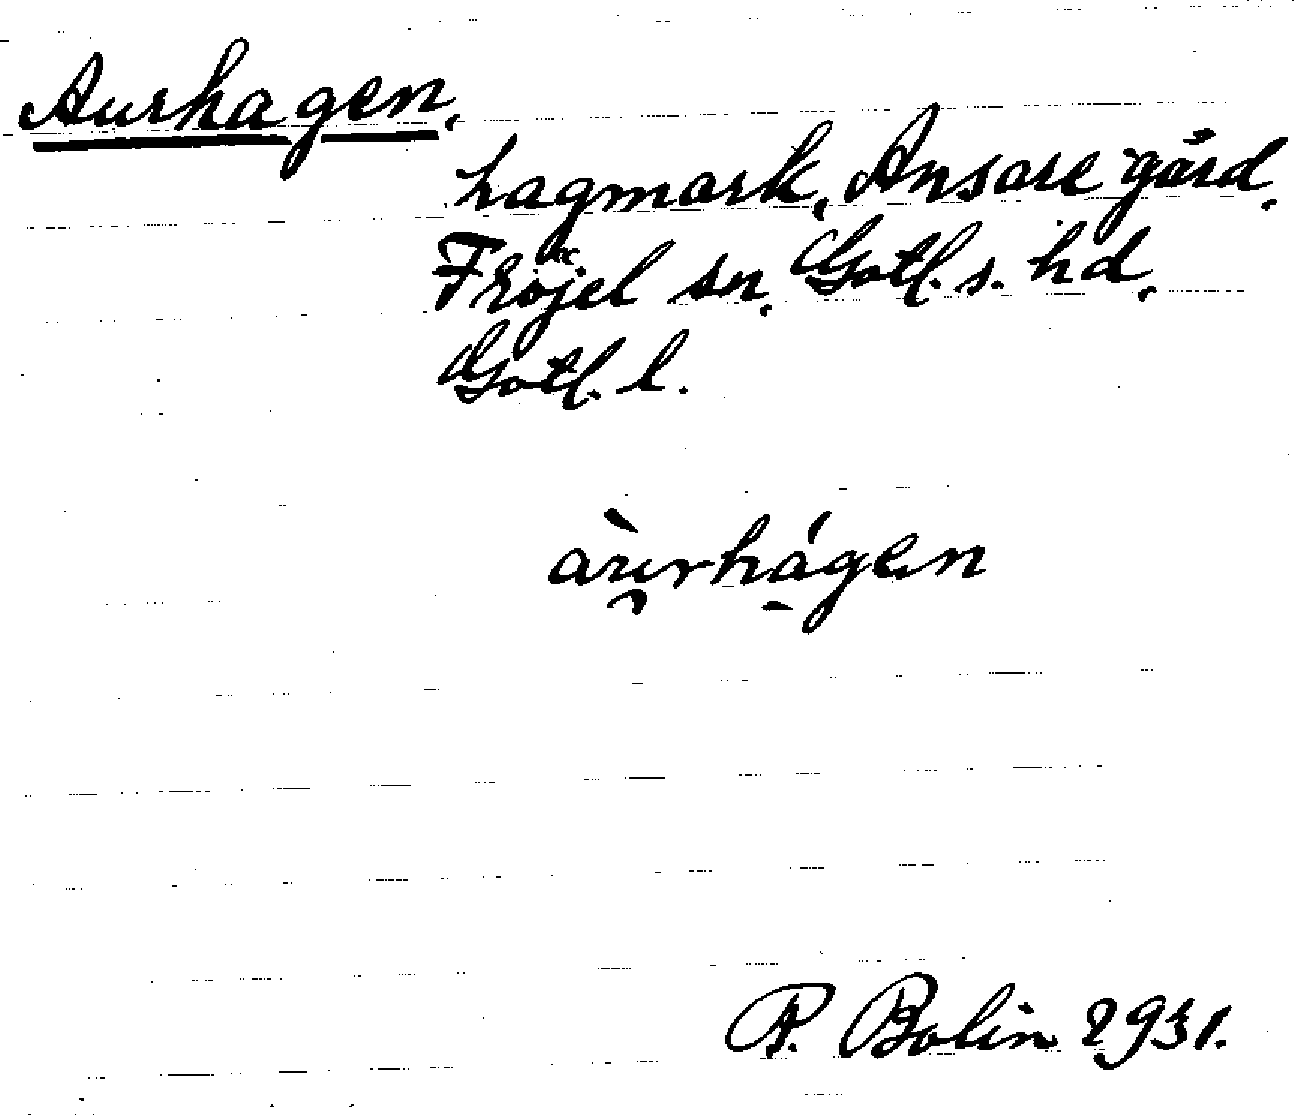 Aurhagen.
hagmark, Ansare gård,
Fröjel sn, Gotl. s. hd,
Gotl. l.
àu̯rhá̱gen
P. Bolin 1931.